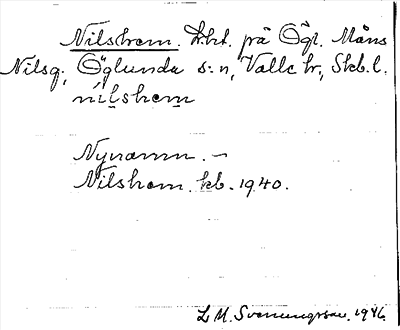 Nilshem. Lht. på Ögl. Måns
Nilsg., Öglunda s:n, Valle hr, Skb. l.
nilshem
Nynamn. —
Nilshem. kb. 1940.
L M. Svenungsson. 1946.